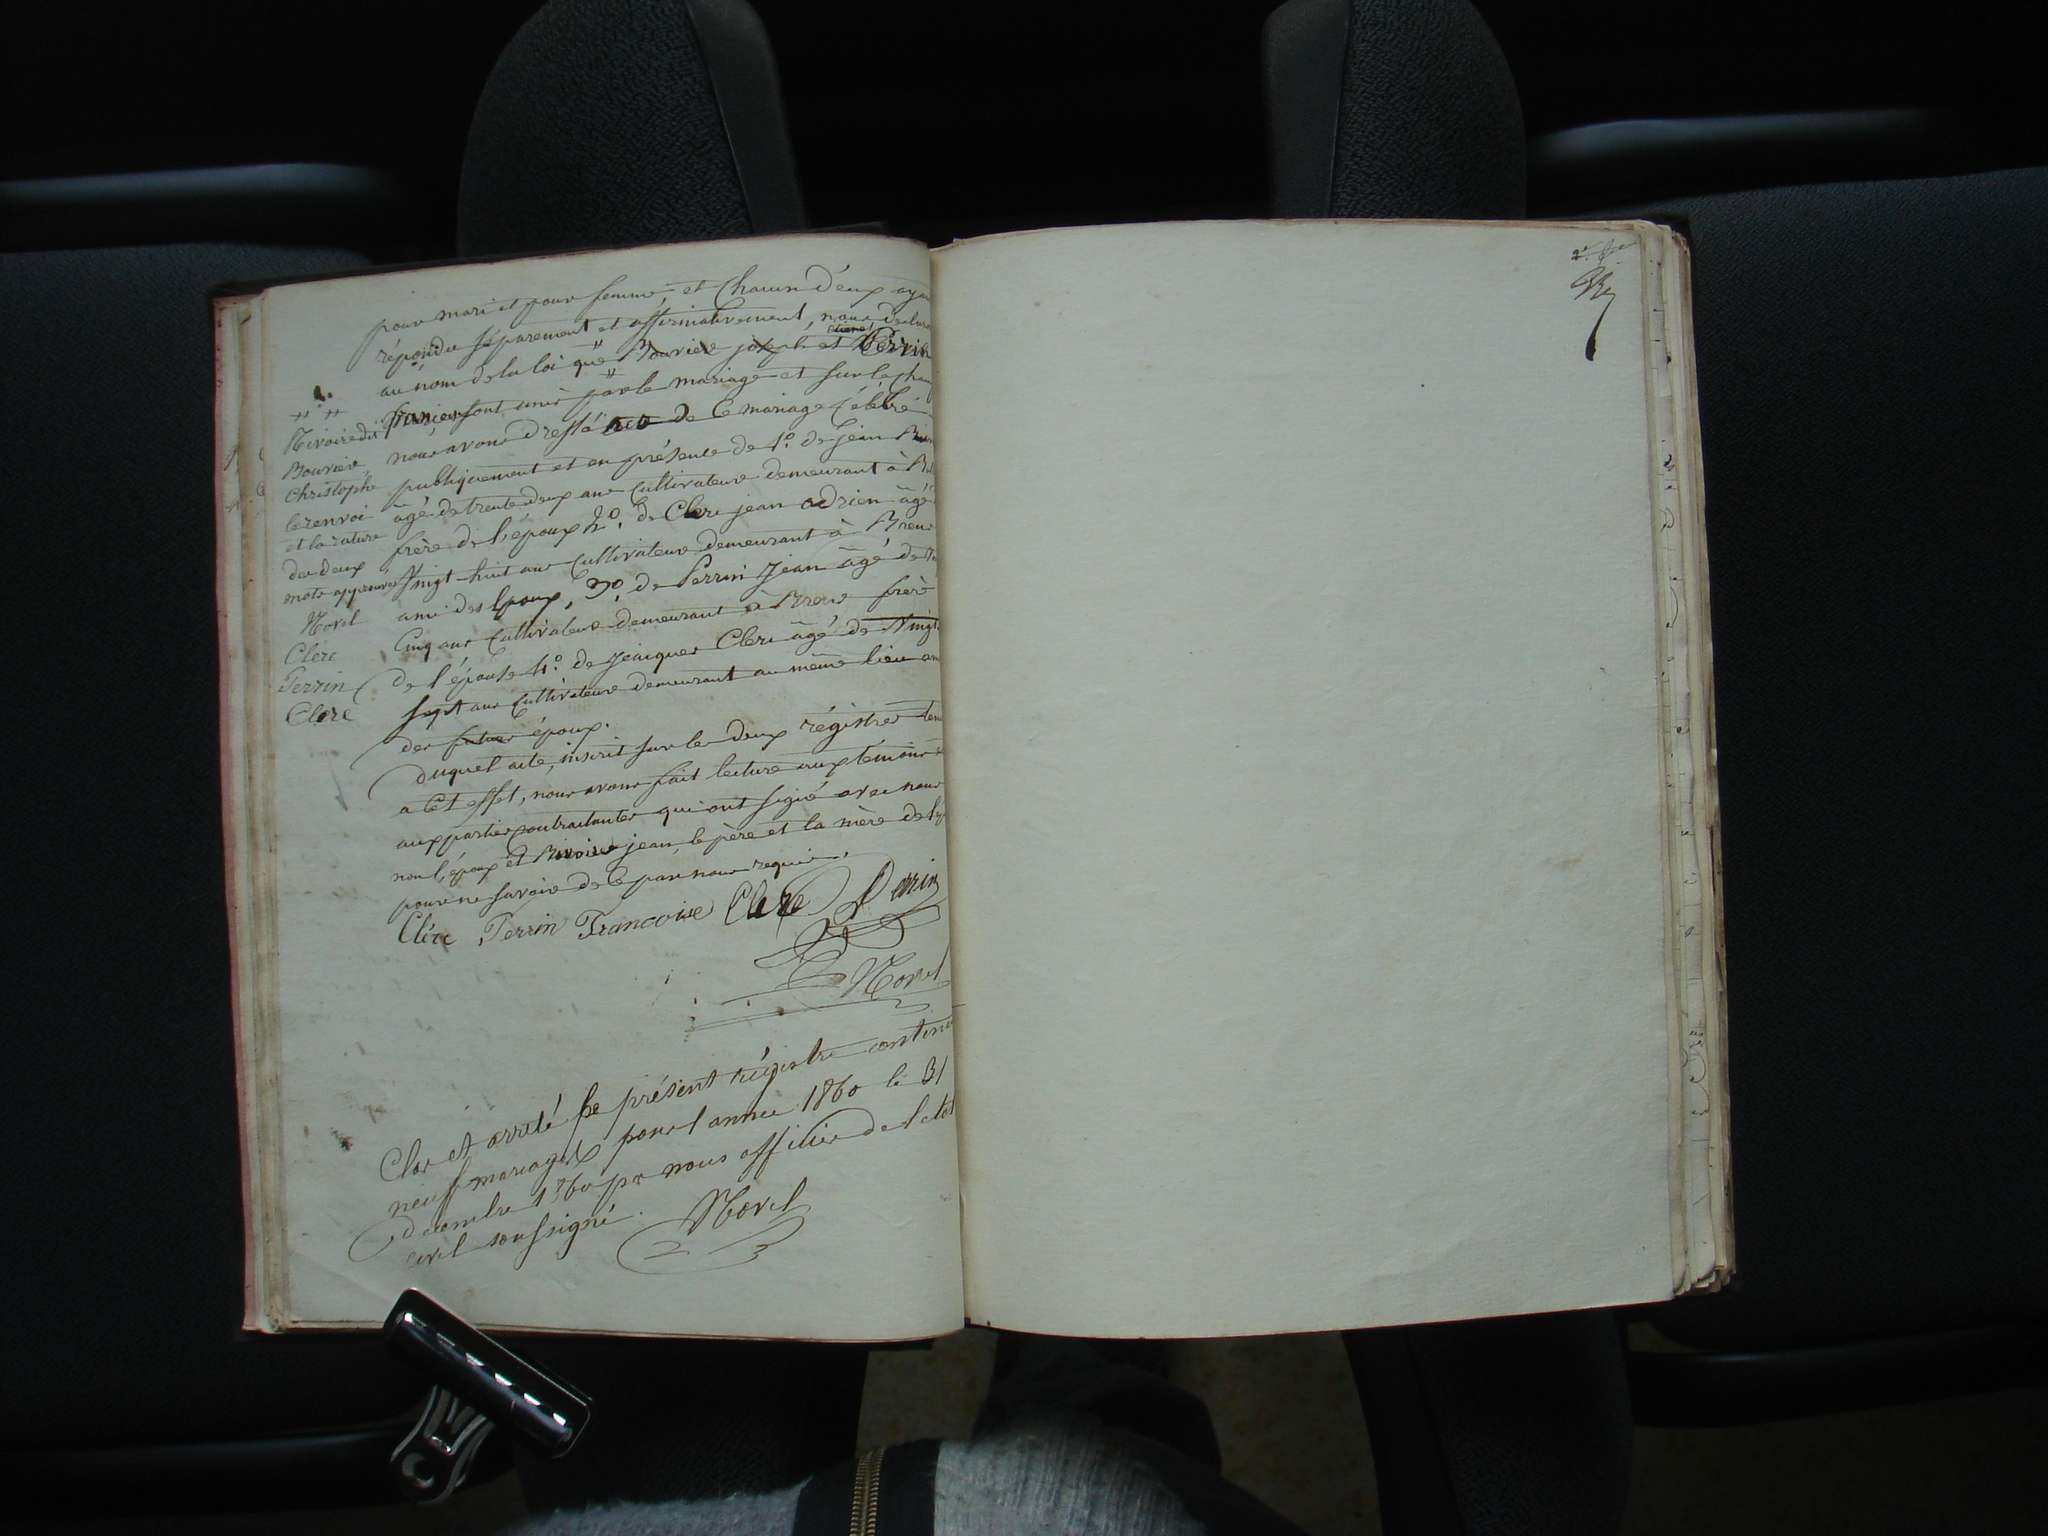 pour mari et pour femme et Chacun d'eux ayant
répondu séparement et affirmativement, nous déclarons
au nom de la loi que Bouvier joseph et Perrin
françoise sont unis par le mariage et sur le champ
nous avons dressé acte de Ce mariage Célébré
publiquement et en présence de 1º. de jean
âgé de trente deux ans Cultivateur demeurant à
frère de l'époux 2º. de Clerc jean adrien âgé
Vingt-huit ans Cultivateur demeurant à
ami des époux, 3º. de Perrin Jean âgé de
Cinq ans Cultivateur demeurant à frère
de l'épouse 4º. de Jacques Clerc âgé de Vingt
sept ans Cultivateur demeurant au même lieu ami
des futurs époux.
duquel acte, inscrit sur les deux régistres tenus
a Cet effet, nous avons fait lecture aux témoins et
aux parties contractantes qui ont signé avec nous
non l'époux et jean, le père et la mère de
pour ne savoir de ce par nous requis.
Clerc Perrin Francoise Clerc Perrin
Morel
Rivoire dit
Bouvier
Christophe
le renvoi
et la rature
des deux
mots approuvés
Morel
Clerc
Perrin
Clerc
Clos et arreté le présent régistre contenant
neuf mariages pour l'année 1860 le 31
decembre 1860 par nous officier de l'etat
civil soussigné.
Morel